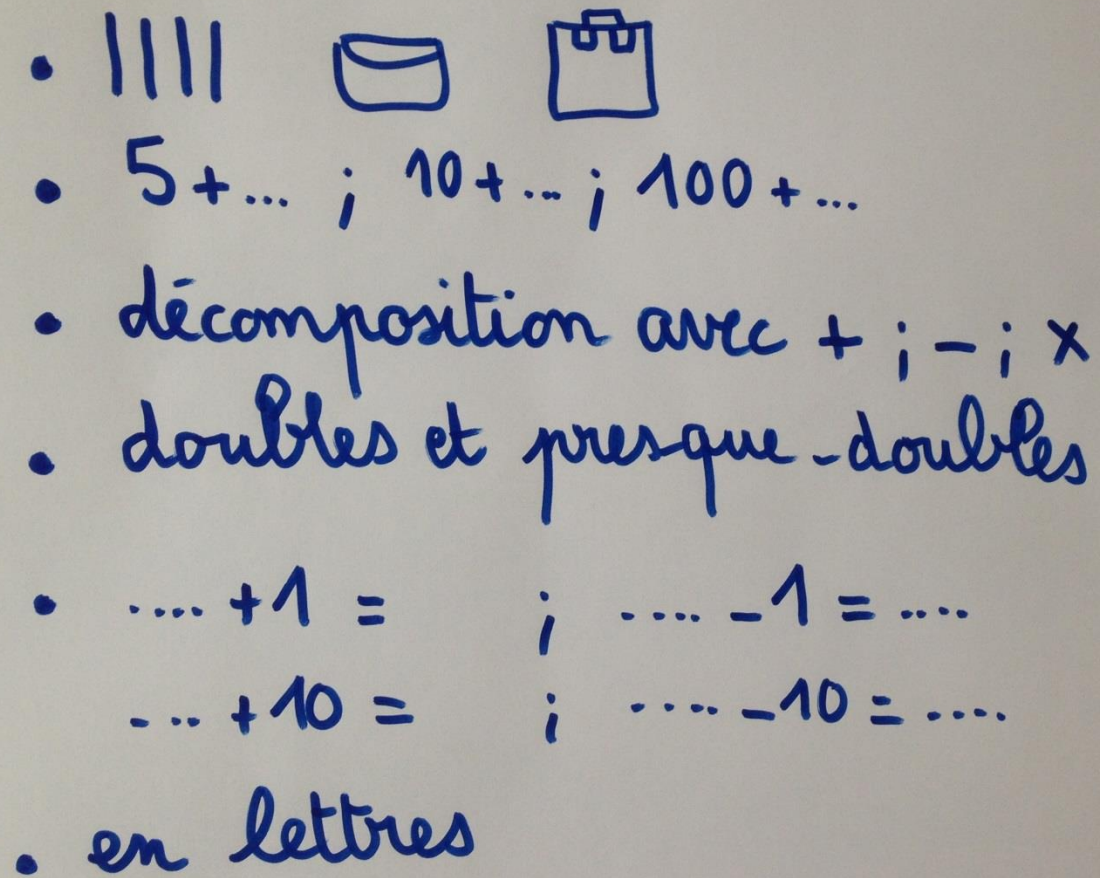 • ||||
• 5+... ; 10+... ; 100+...
• décomposition avec + ; - ; x
• doubles et presque-doubles
• .... +1 = ; .... -1 = ....
... +10 = ; .... -10 = ....
• en lettres